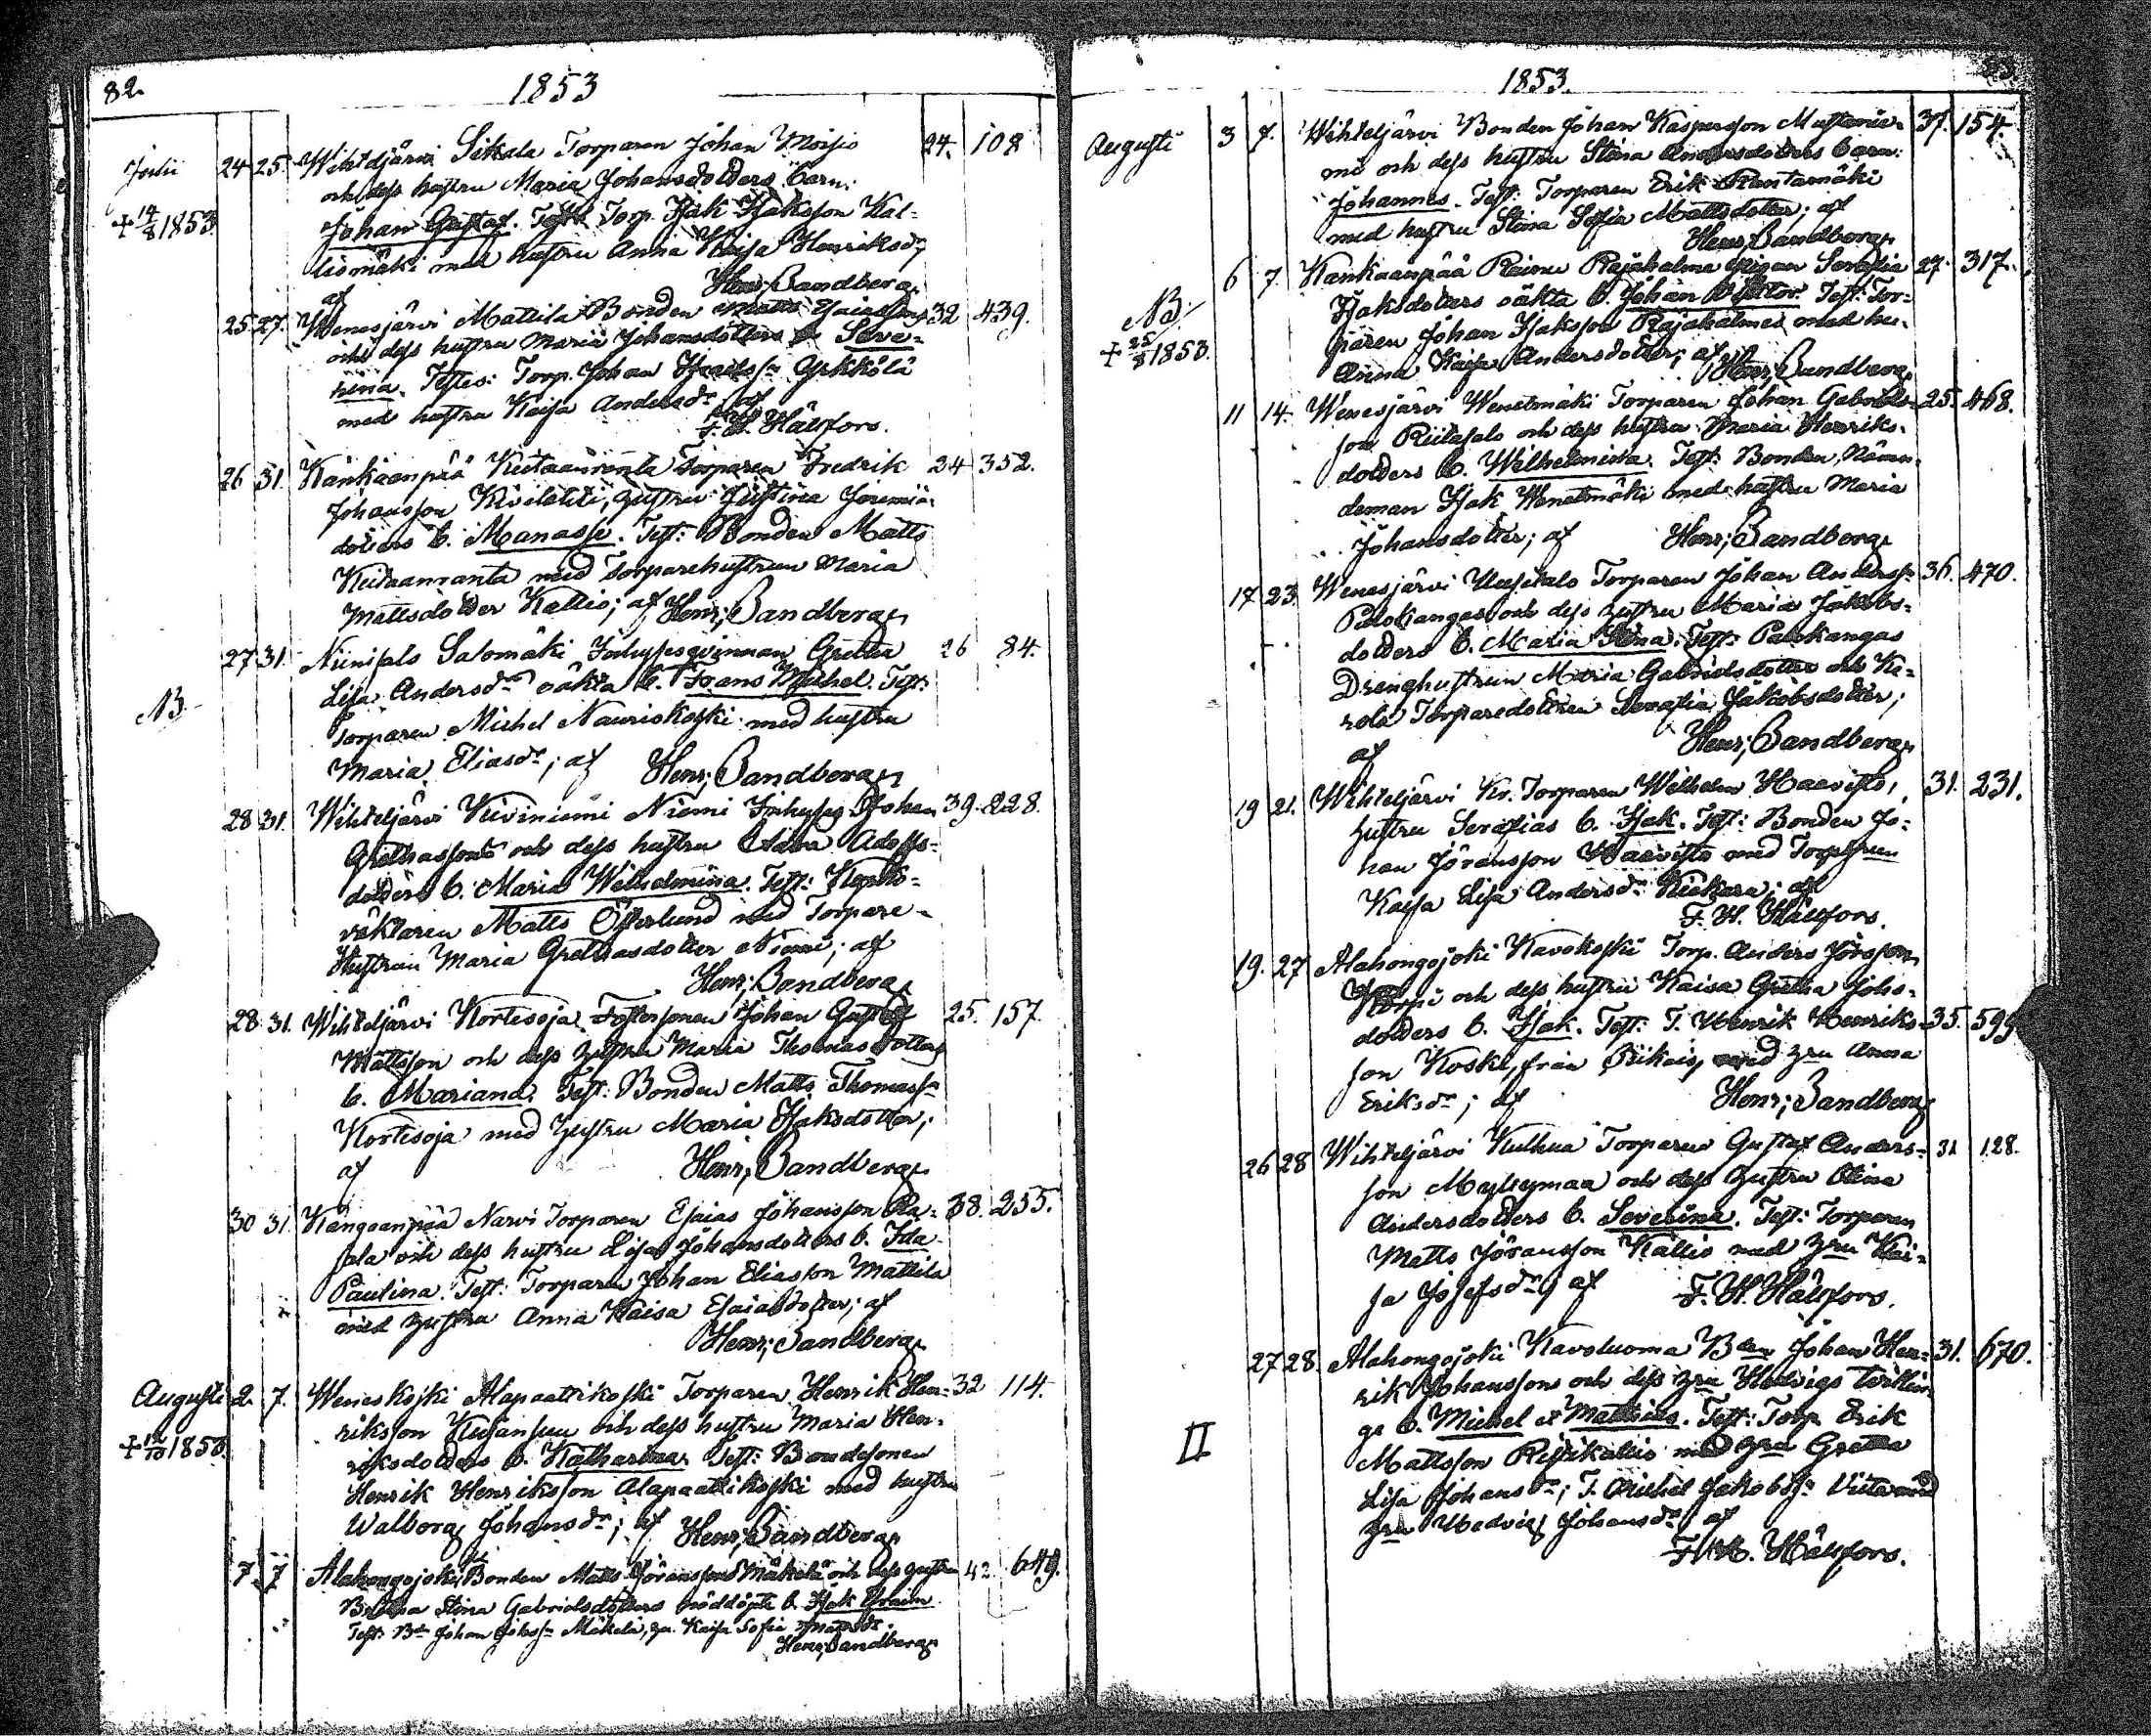 82.
1853
Julii 24 25. Wihteljärvi Sikala Torparen Johan Moisio 24. 108
och dess hustru Maria Johansdotters barn:
+ 14/8 1853. Johan Gustaf. Test: Torp. Isak Isaksson Kal-
liomäki med hustru Anna Kaisa Henriksdr
af Henr; Sandberg
25 27. Wenesjärvi Mattila Bonden Matts Esaiassons 32 439.
och dess hustru Maria Johansdotters b. Seve-
rina. Testes: Torp. Johan Yrkkölä
med hustru Kaisa Andersdr af
F. H. Hällfors.
26 31. Kankaanpää Kiitaanranta Torparen Fredrik 24 352.
Johansson Kivilahti, hustru Justina Jeremia-
dotters b. Manasse. Test: Bonden Matts
Kiitaanranta med Torparehustrun Maria
Mattsdotter Kallio; af Henr; Sandberg
27 31. Niinisalo Salomäki Inhysesqvinnan Gretha 26 84.
NB Lisa Andersdr oäkta b. Frans Michel. Test:
Torparen Michel Nauriskoski med hustru
Maria Eliasdr; af Henr; Sandberg
28 31. Wihteljärvi Niemi Inhyses Johan 39. 228.
Grethasson och dess hustru Adolfs-
dotters b. Maria Wilhelmina. Test:
väktaren Matts Österlund med Torpare-
Hustrun Maria Grethasdotter Niemi; af
Henr; Sandberg
28 31. Wihteljärvi Kortesoja Fostersonen Johan Gustaf 25. 157.
Mattsson och dess hustru Maria Thomasdotters
b. Mariana. Test: Bonden Matts Thomass:n
Kortesoja med hustru Maria Isaksdotter;
af Henr; Sandberg
30 31. Kangaanpää Narvi Torparen Esaias Johansson Ra- 38. 255.
jala och dess hustru Lisa Johansdotters b. Ida
Paulina. Test: Torparen Johan Eliasson Mattila
med hustru Anna Kaisa Esaiasdotter; af
Henr; Sandberg
Augusti 2. 7. Weneskoski Alapaattikoski Torparen Henrik Hen- 32 114.
riksson och dess hustru Maria Hen-
+ 12/10 1853. riksdotters b. Katharina. Test: Bondesonen
Henrik Henriksson Alapaattikoski med hustru
Walborg Johansdr; af Henr; Sandberg
7 7 Alahongojoki Bonden Matts Göransson Mäkelä och dess hustru 42. 649.
Stina Gabrielsdotters nöddöpte b. Isak Efraim.
Test: Bn Johan Mäkelä, hu. Kaisa Sofia
Henr; Sandberg
1853.
83
Augusti 3 7. Wihteljärvi Bonden Johan Kaspersson Mustanie- 37. 154.
mi och dess hustru Stina Andersdotters barn:
Johannes. Test: Torparen Erik Rantamäki
med hustru Stina Sofia Mattsdotter; af
Henr; Sandberg
6 7. Kankaanpää Rajahalme Pigan Serafia 27. 317.
NB Isaksdotters oäkta b. Johan Viktor. Test: Tor-
+ 25/8 1853. paren Johan Isaksson Rajahalme med hu.
Anna Kaisa Andersdotter; af Henr; Sandberg
11 14. Wenesjärvi Wenetmäki Torparen Johan Gabriels- 25. 468.
son Riitasalo och dess hustru Maria Henriks-
dotters b. Wilhelmina. Test: Bonden, Näm-
deman Isak Wenetmäki med hustru Maria
Johansdotter; af Henr; Sandberg
17 23. Wenesjärvi Uusitalo Torparen Johan Anderss:n 36. 470.
Palokangas och dess hustru Maria Jakobs-
dotters b. Maria Stina. Test: Palokangas
Drenghustrun Maria Gabrielsdotter och
Torparedottren Serafia Jakobsdotter;
af Henr; Sandberg
19 21. Wihteljärvi Kr. Torparen Wilhelm Haavisto, 31. 231.
hustru Serafias b. Isak. Test: Bonden Jo-
han Göransson Haavisto med
Kaisa Lisa Andersdr af
F. H. Hällfors.
19. 27. Alahongojoki Kavokoski Torp. Anders
och dess hustru Kaisa Gretha Johs-
dotters b. Isak. Test: T. Henrik Henriks- 35. 599
son Koski, från med hru Anna
Eriksdr; af Henr; Sandberg
26 28 Wihteljärvi Kulkua Torparen Gustaf Anders- 31 128.
son Myllymaa och dess hustru
Andersdotters b. Severina. Test: Torparen
Matts Göransson Kallio med hru Kai-
sa Josefsdr; af F. H. Hällfors.
27 28. Alahongojoki Kavoluoma Bden Johan Hen- 31. 670.
rik Johanssons och dess hru Hedvigs tvillin-
II ge b. Michel et Matthias. Test: Torp. Erik
Mattsson Ristikallio med hru Gretha
Lisa Johansdr; T. Michel Jakobss:n
hru Hedvig Johansdr; af
F. H. Hällfors.